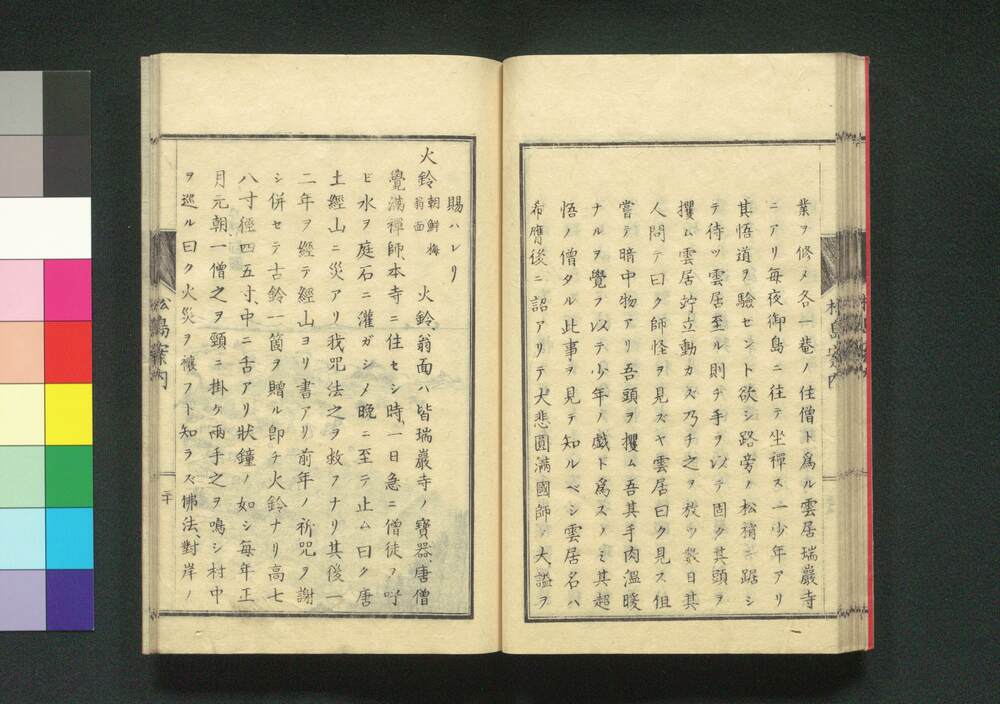 業ヲ修メ各一菴ノ住僧ト爲ル雲居瑞巖寺
ニアリ毎夜御島ニ往テ坐禪ス一少年アリ
其悟道ヲ驗セント欲シ路旁ノ松稍ニ踞シ
テ待ツ雲居至ル則チ手ヲ以テ固ク其頭ヲ
攫ム雲居竚立動カズ乃チ之ヲ放ツ數日其
人問テ曰ク師怪ヲ見ズヤ雲居曰ク見ス但
嘗テ暗中物アリ吾頭ヲ攫ム吾其手肉溫暖
ナルヲ覺フ以テ少年ノ戲ト爲スノミ其超
悟ノ僧タル此事ヲ見テ知ルベシ雲居名ハ
希膺後ニ詔アリテ大悲圓滿國師ノ大謚ヲ
松島案内
賜ハレリ
火鈴 朝鮮梅 翁面 火鈴、翁面ハ皆瑞巖寺ノ寶器、唐僧
覺滿禪師、本寺ニ住セシ時、一日急ニ僧徒ヲ呼
ビ水ヲ庭石ニ灌ガシメ晩ニ至テ止ム曰ク唐
土經山ニ災アリ我呪法之ヲ救フナリ其後一
二年ヲ經テ經山ヨリ書アリ前年ノ祈呪ヲ謝
シ併セテ古鈴一箇ヲ贈ル卽チ火鈴ナリ高七
八寸徑四五寸、中ニ舌アリ狀鐘ノ如シ毎年正
月元朝、一僧之ヲ頸ニ掛ケ兩手之ヲ鳴シ村中
ヲ巡ル曰ク火災ヲ禳フト知ラズ佛法、對岸ノ
松島案内
二十